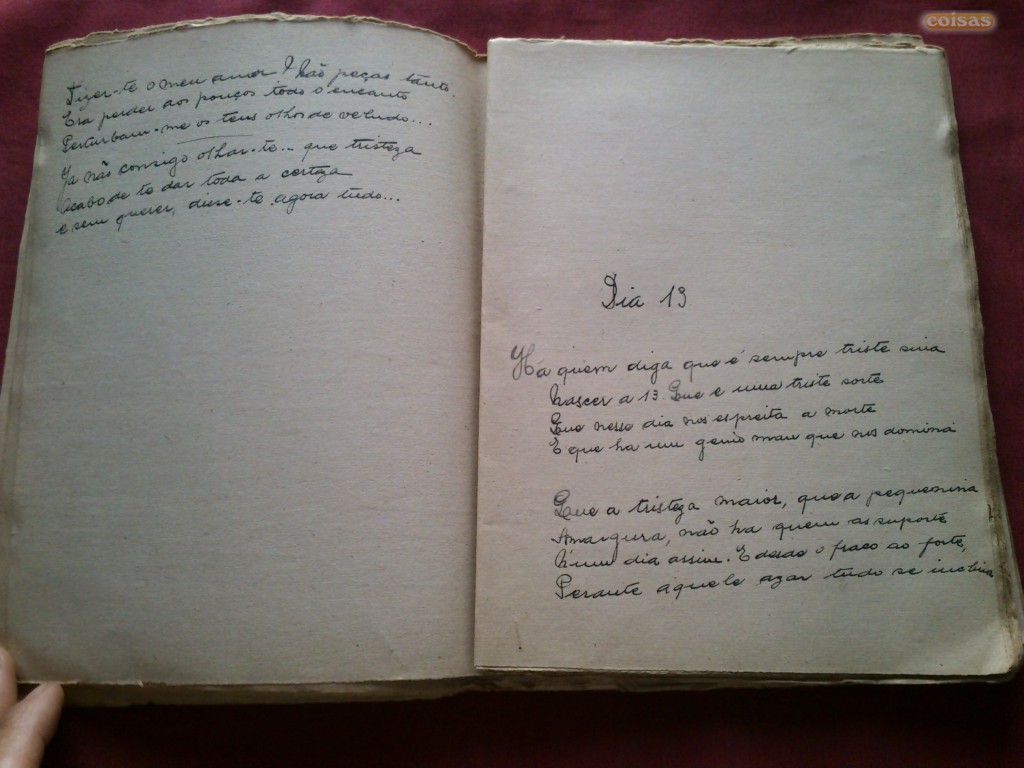 Dizer-te o meu amor? Não peças tanto.
Era perder aos poucos todo o encanto
Perturbam-me os teus olhos de veludo...
Ja não consigo olhar-te... que tristeza
Acabo de te dar toda a certeza
e sem querer, disse-te agora tudo...
Dia 13
Há quem diga que é sempre triste sina
Nascer a 13. Que e uma triste sorte
Que nesse dia nos espreita a morte
E que ha um genio mau que nos domina
Que a tristeza maior, que a pequenina
Amargura, não ha quem as suporte
N'um dia assim. E desde o fraco ao forte,
Perante aquele azar tudo se inclina
coisas